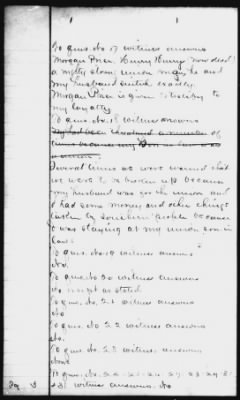 To ques. No 17 witness answers
Morgan Pria. Henry Henry now dead
a mighty strong union man, he and
my husband suited exactly.
Morgan Pria is given testify to
my loyalty
To ques. No 18 witness answers
of
Several times we were warned that
we were to be broken up because
my husband was for the union and
I had some money and other things
taken by southern people because
I was staying at my union son in
laws
To ques. No 19 witness answers
No.
To ques. No 20 witness answers
No except as stated
To ques. No 21 witness answers
No
To ques. No 22 witness answers
No.
To ques. No 23 witness answers
dont
To ques. No. 25- 26- 27- 28 29 &
31 witness answers. No